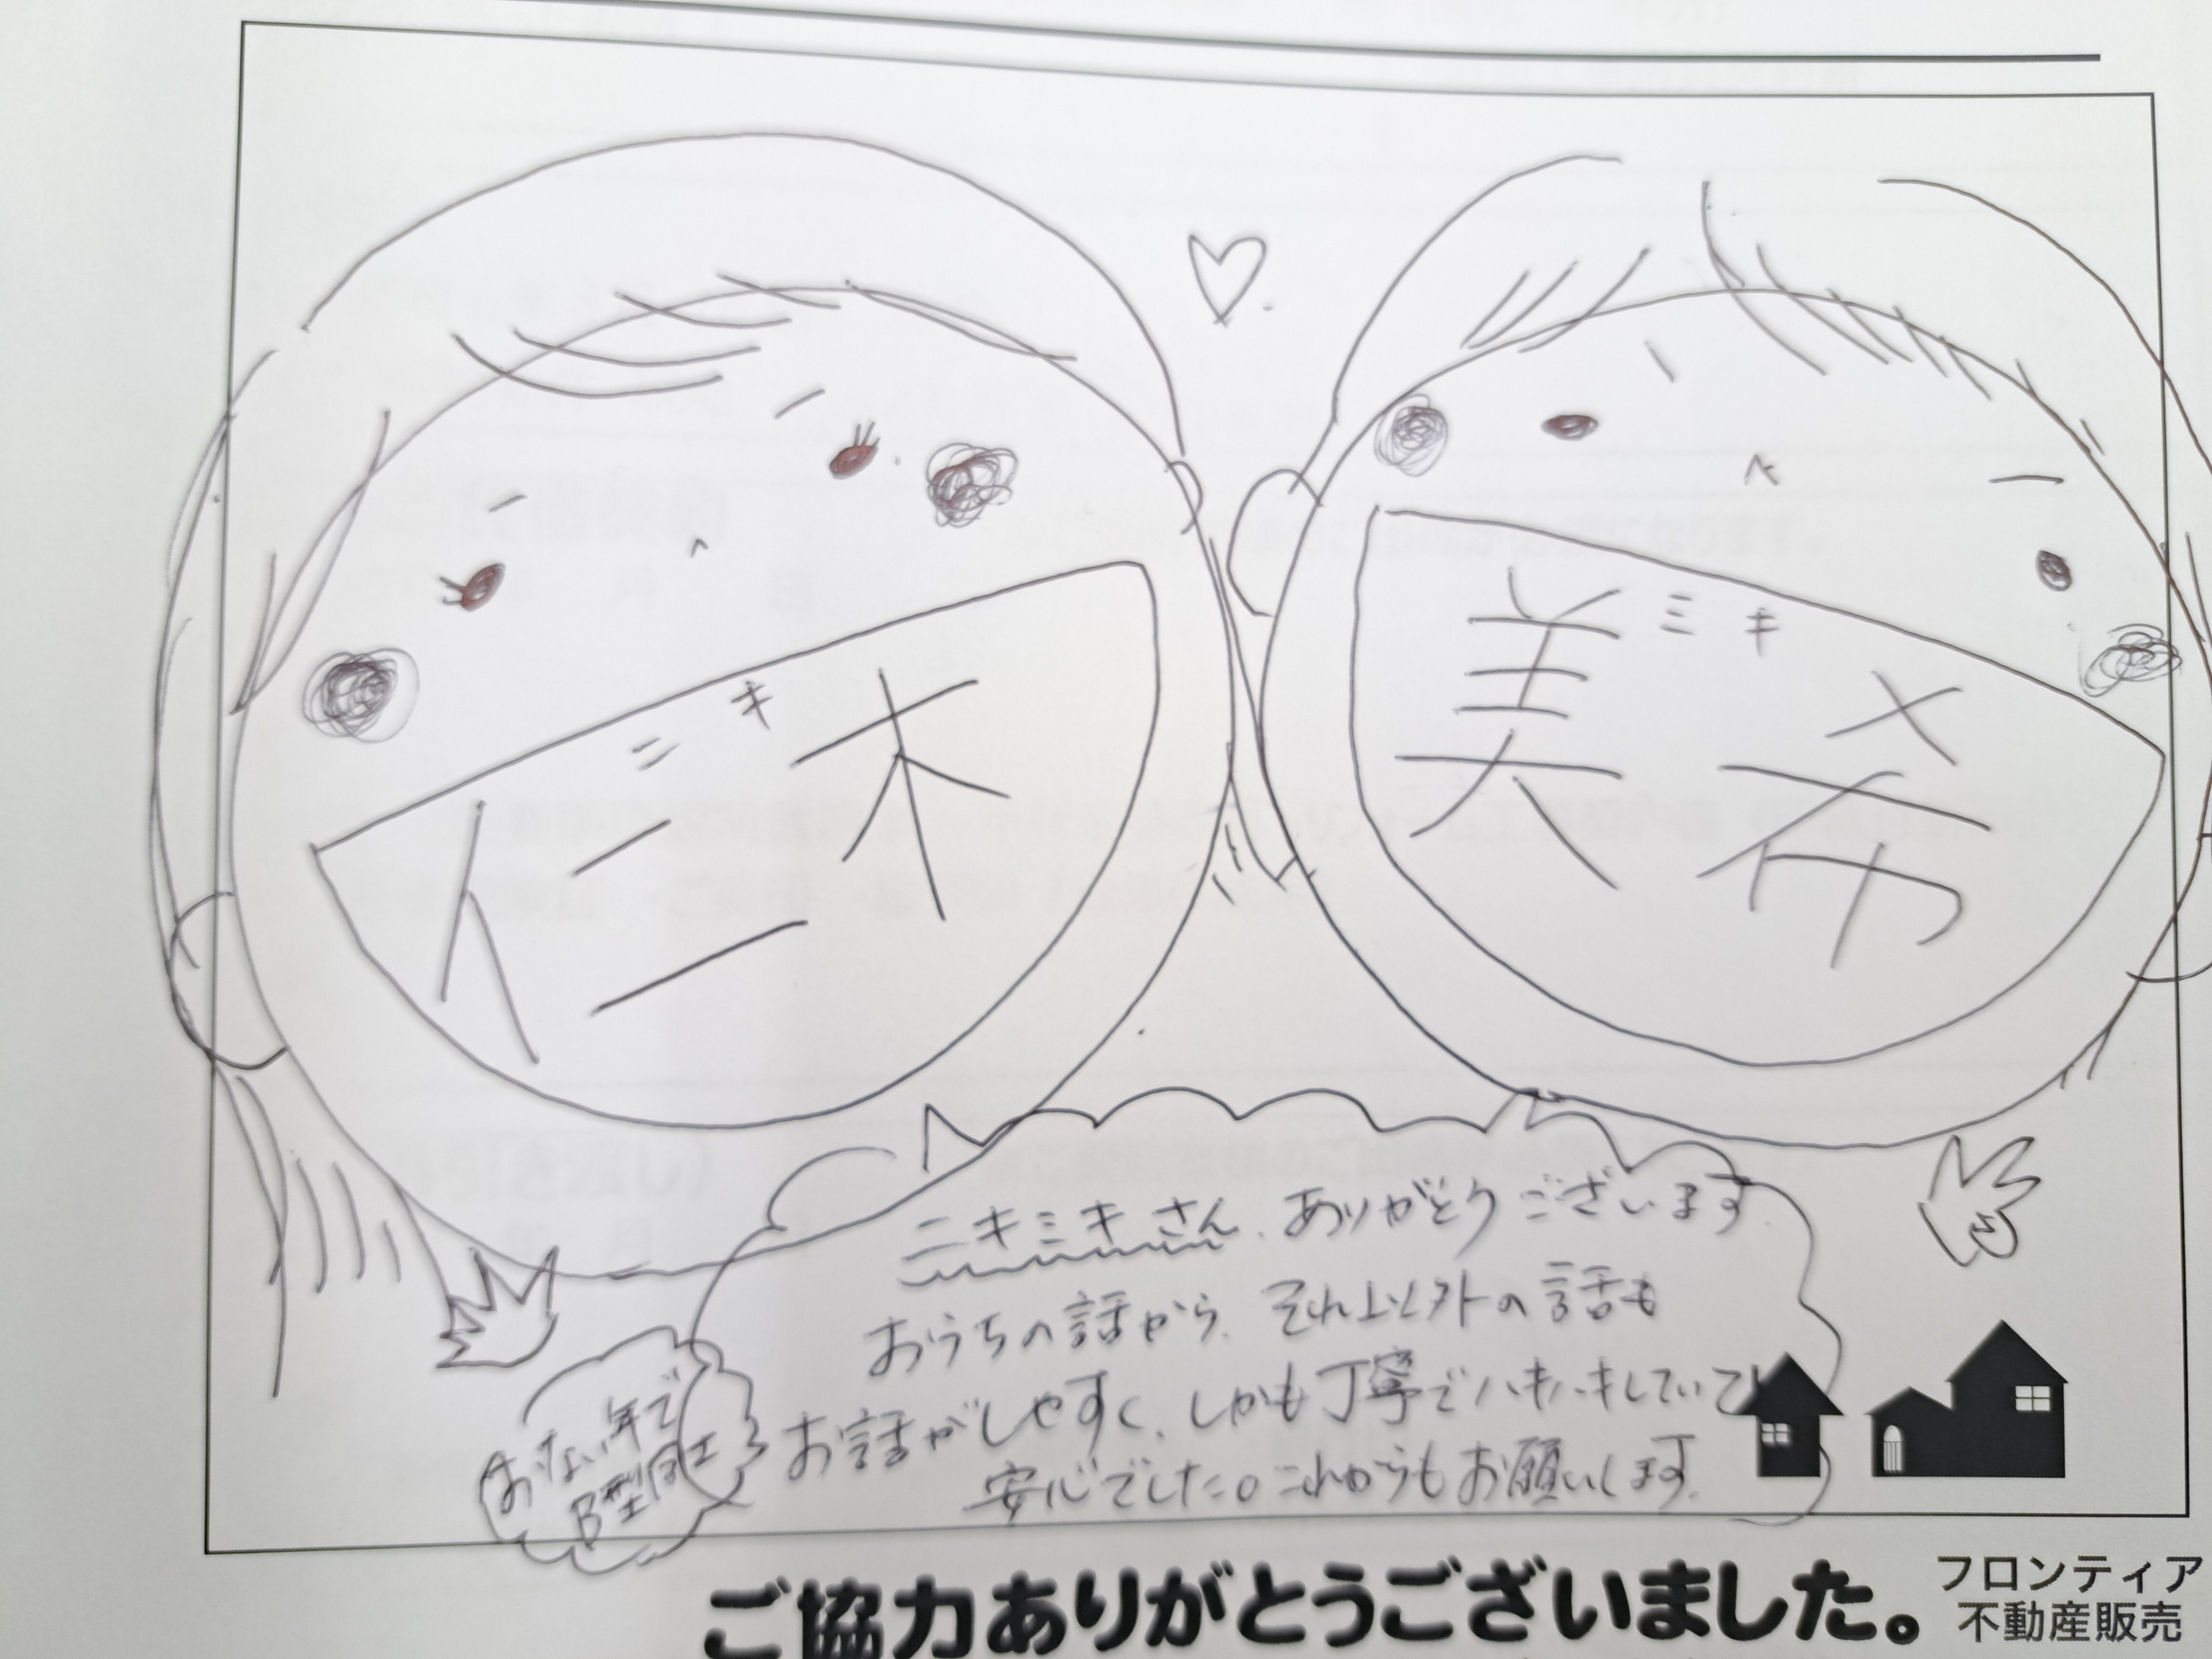 ニキ
仁木
ミキ
美希
ニキミキさん、ありがとうございます。
おうちの話から、それ以外の話も
お話がしやすく、しかも丁寧でハキハキしていて
安心でした。これからもお願いします。
おない年で
B型同士
ご協力ありがとうございました。
フロンティア
不動産販売